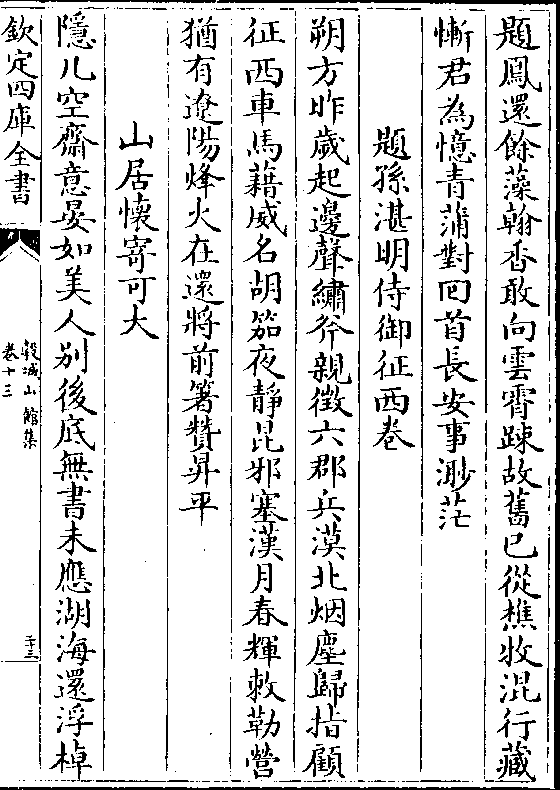 題鳳還餘藻翰香敢向雲霄踈故舊已從樵牧混行藏
慚君為憶青蒲對回首長安事渺茫
題孫湛明侍御征西卷
朔方昨歲起邊聲繡斧親徵六郡兵漠北烟塵歸指顧
征西車馬藉威名胡笳夜靜昆邪塞漢月春輝敕勒營
猶有遼陽烽火在還將前箸贊昇平
山居懷寄可大
隱几空齋意晏如美人別後底無書未應湖海還浮棹
欽定四庫全書
穀城山館集
卷十三
二十三